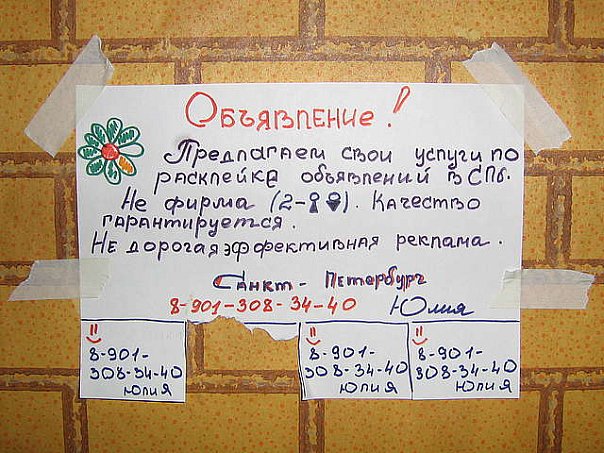 Объявление!
Предлагаем свои услуги по
расклейке объявлений в СПб.
Не фирма (2-). Качество
гарантируется.
Не дорогая эффективная реклама.
Санкт-Петербург
8-901-308-34-40 Юлия
8-901-
308-34-40
Юлия
8-901-
308-34-40
Юлия
8-901-
308-34-40
Юлия